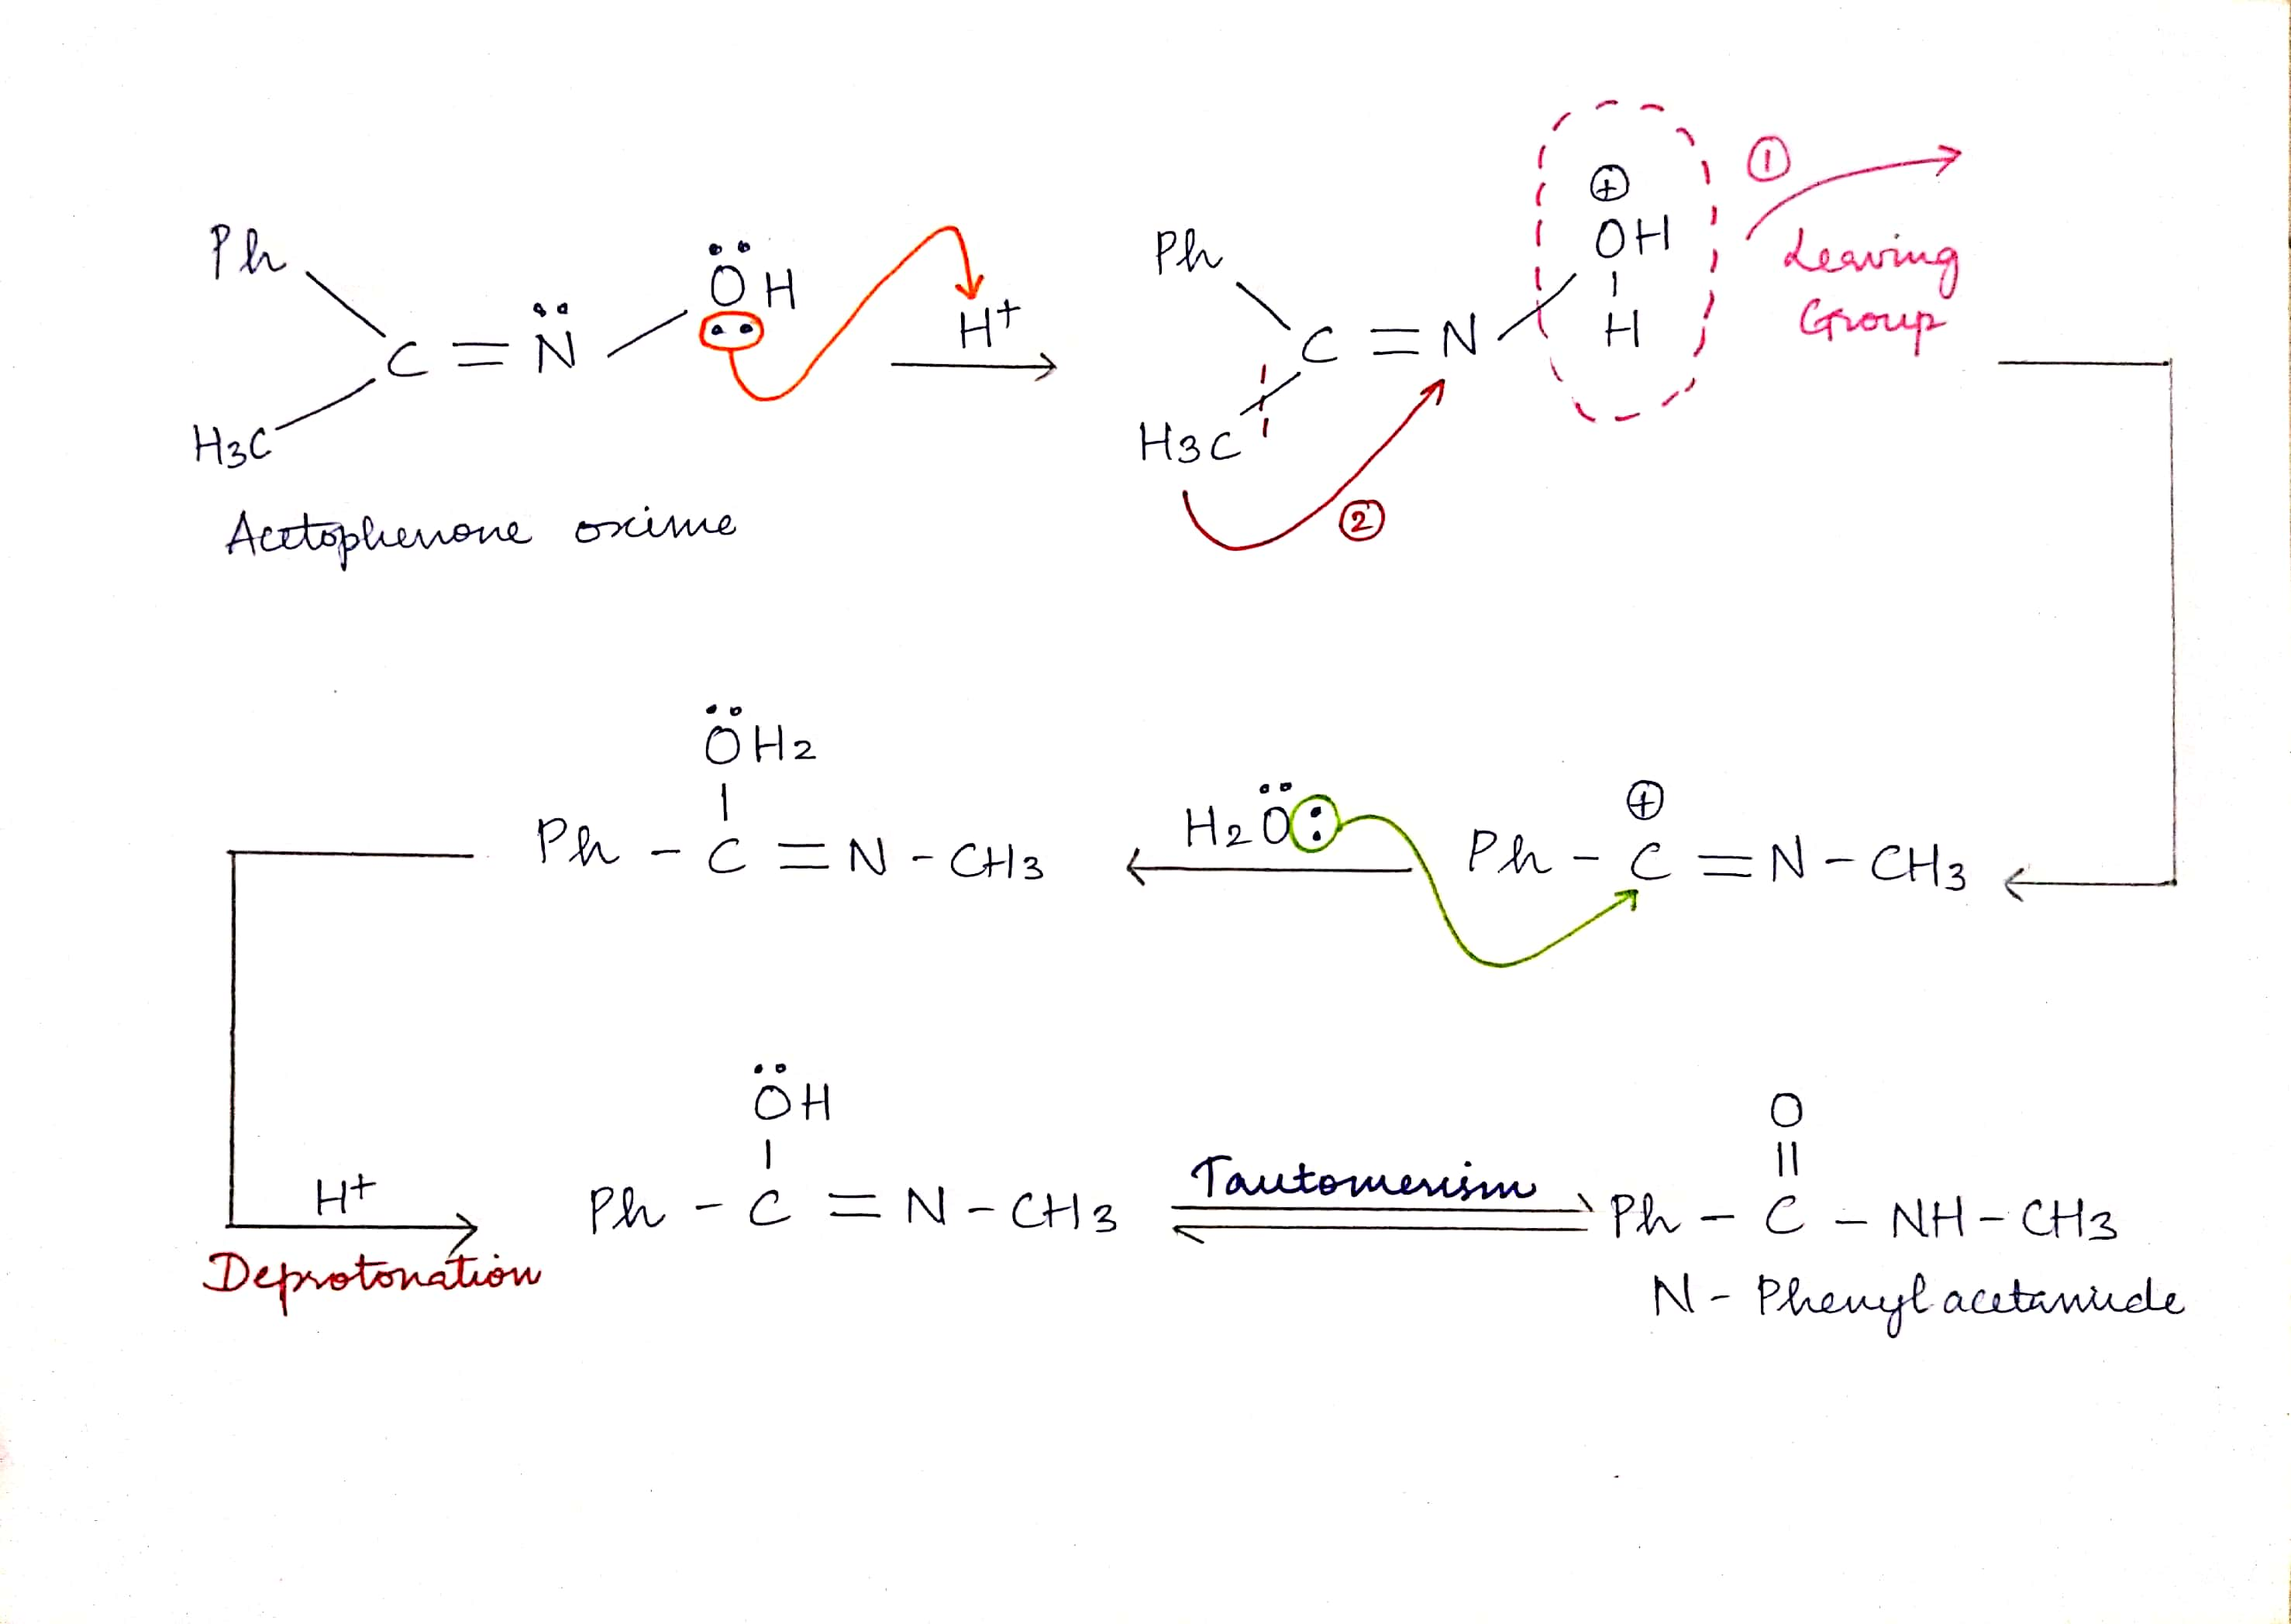 Ph
ÖH
H+
C = N̈
H3C
Acetophenone oxime
Ph
⊕
OH
H
C = N
H3C
①
Leaving
Group
②
ÖH2
Ph - C = N - CH3
H2Ö:
⊕
Ph - C = N - CH3
H+
Deprotonation
ÖH
Ph - C = N - CH3
Tautomerism
O
Ph - C - NH - CH3
N - Phenylacetamide